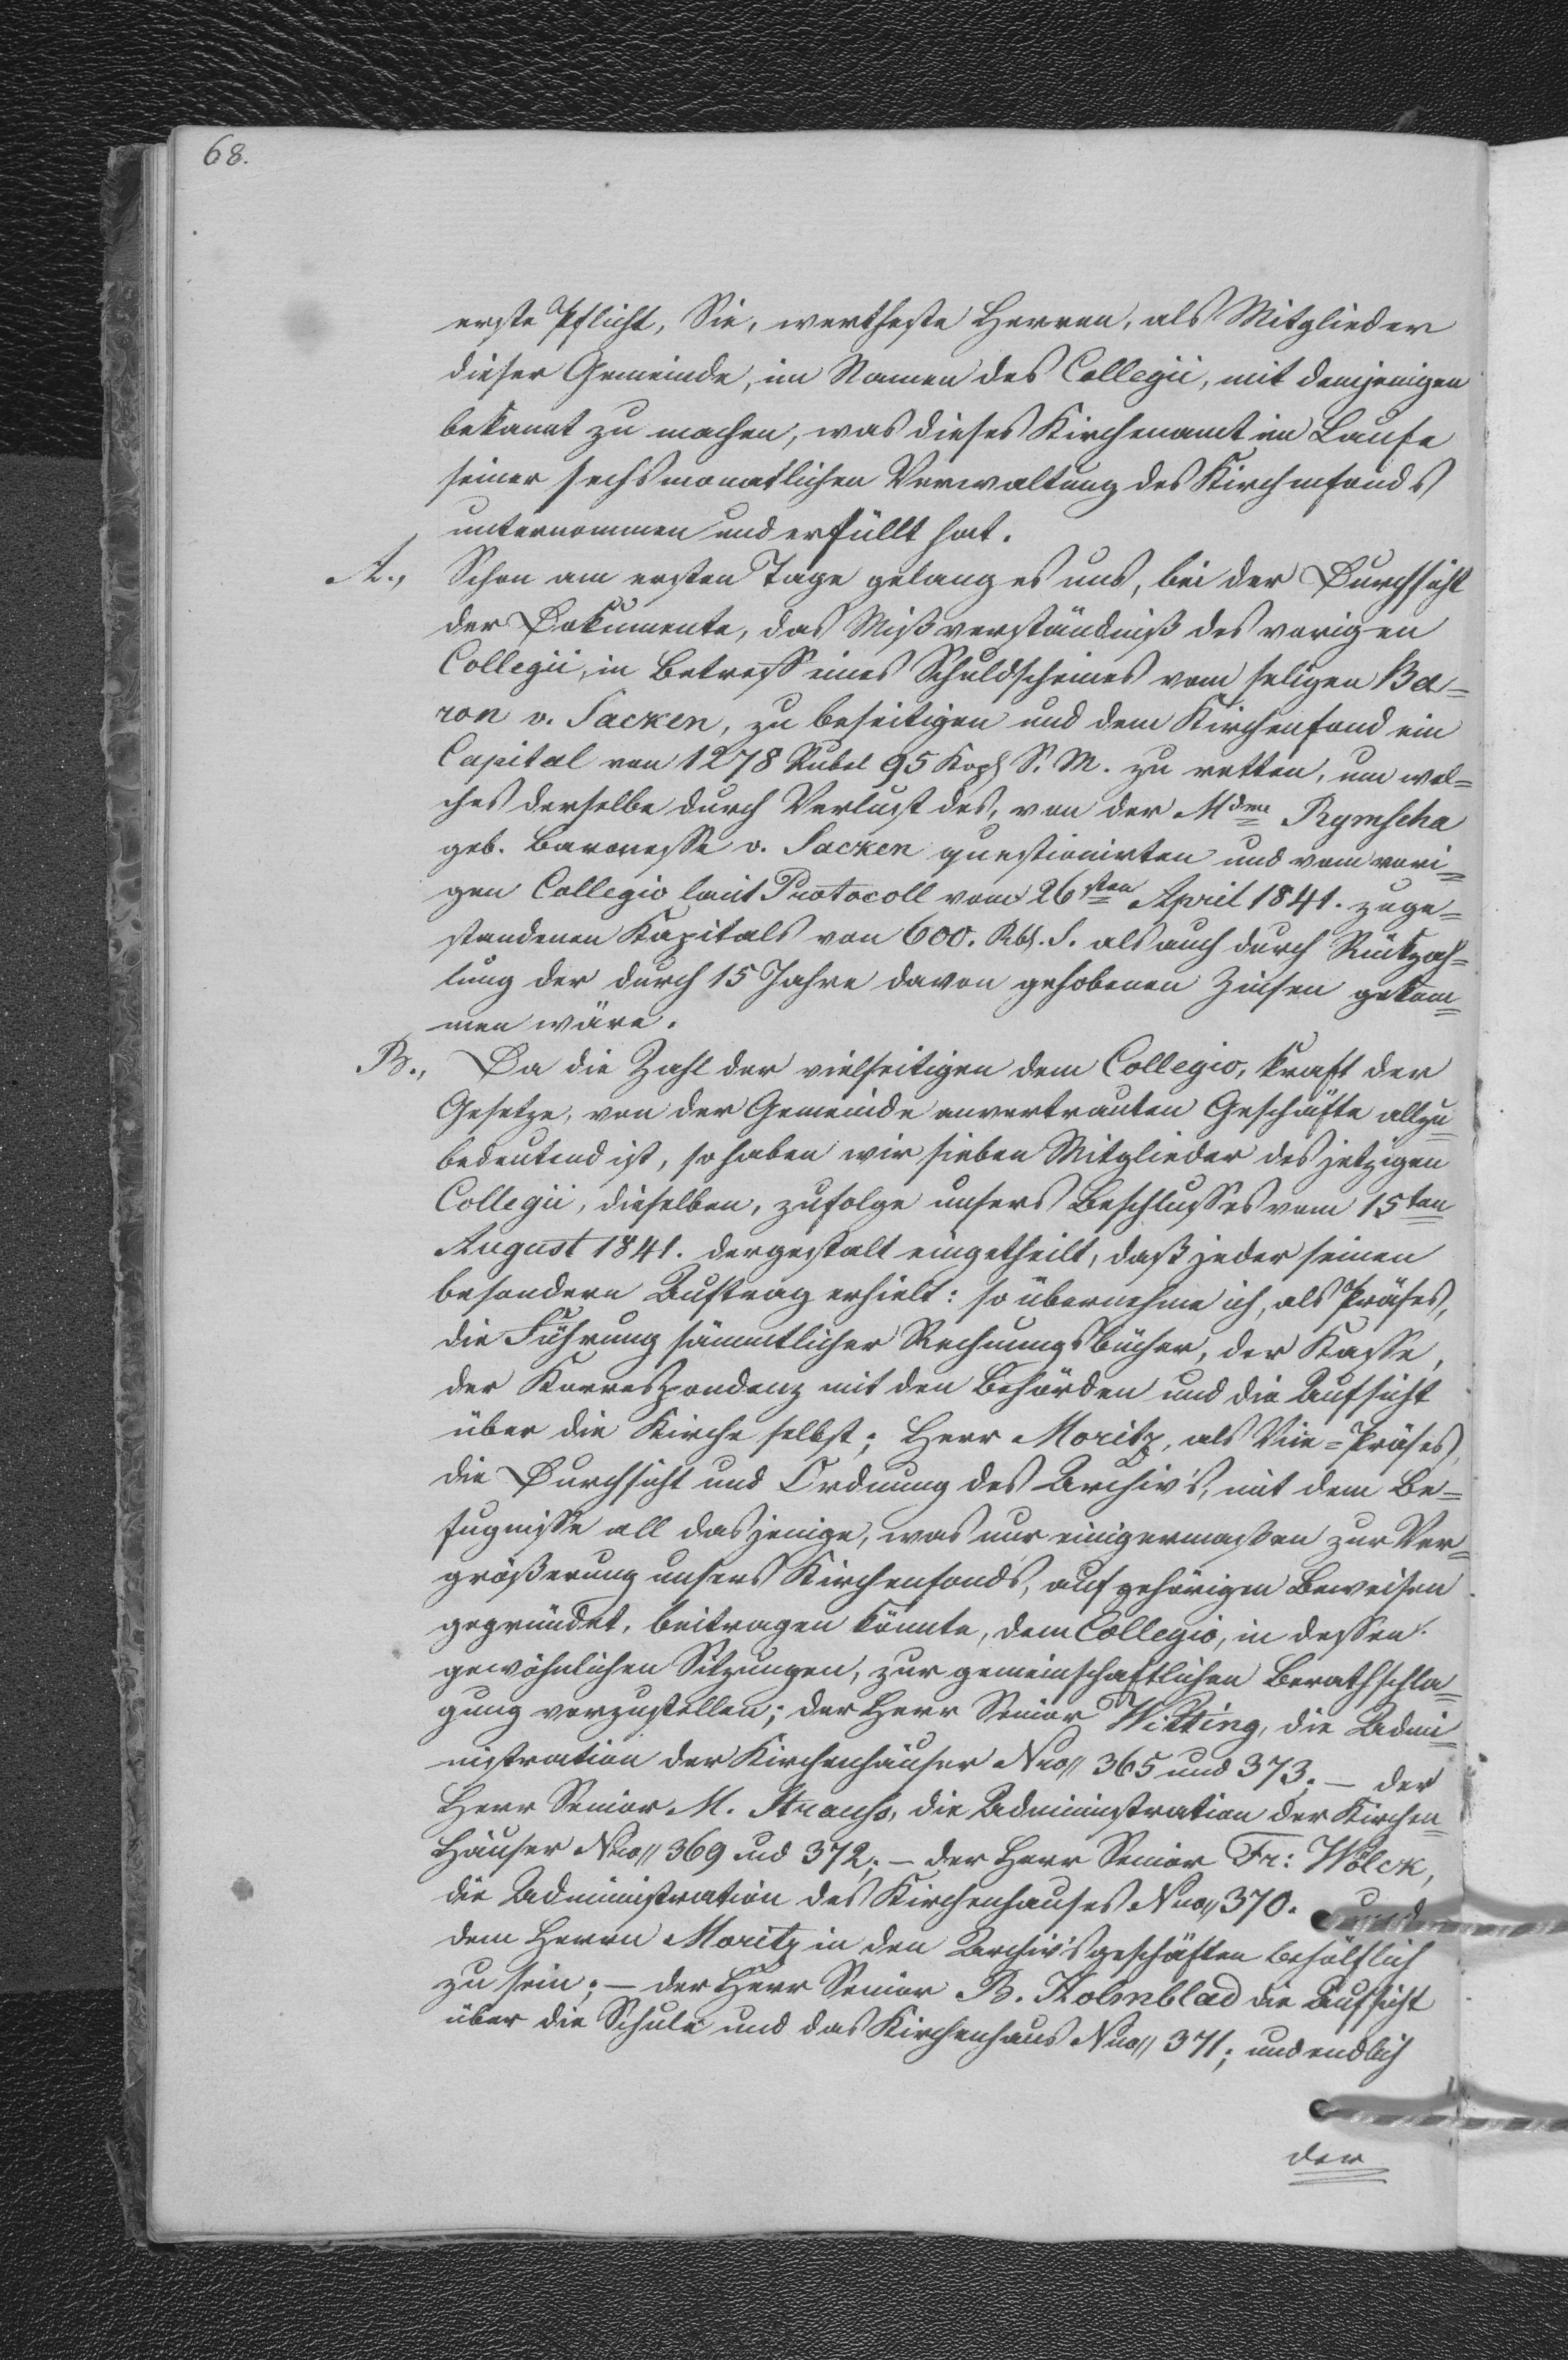 68.
erste Pflicht, Sie, wertheste Herren, als Mitglieder
dieser Gemeinde, im Namen des Collegii, mit demjenigen
bekannt zu machen, was dieses Kirchenamt im Laufe
seiner sechsmonatlichen Verwaltung des Kirchenfonds
unternommen und erfüllt hat.
A., Schon am ersten Tage gelang es uns, bei der Durchsicht
der Dokumente, das Mißverständniß des vorigen
Collegii, in Betreff eines Schuldscheines vom seligen Ba=
ron v. Sacken, zu beseitigen und dem Kirchenfond ein
Capital von 1278 Rubel 95 Kop S. M. zu retten, um wel=
ches derselbe durch Verlust des, von der Mdme Rymscha
geb. Baronesse v. Sacken questionirten und vom vori=
gen Collegio laut Protocoll vom 26sten April 1841. zuge=
standenen Kapitals von 600. Rbl. S. als auch durch Rückzah=
lung der durch 15 Jahre davon gehobenen Zinsen gekom=
men wäre.
B., Da die Zahl der vielseitigen dem Collegio, kraft der
Gesetze, von der Gemeinde anvertrauten Geschäfte allzu
bedeutend ist, so haben wir sieben Mitglieder des jetzigen
Collegii, dieselben, zufolge unsers Beschlusses vom 15ten
August 1841. dergestalt eingetheilt, daß jeder seinen
besondern Auftrag erhielt: so übernehme ich, als Präses,
die Führung sämmtlicher Rechnungsbücher, der Kasse,
der Korrespondenz mit den Behörden und die Aufsicht
über die Kirche selbst; Herr Moritz, als Vice=Präses,
die Durchsicht und Ordnung des Archiv's, mit dem Be=
fugnisse all dasjenige, was nur einigermaßen zur Ver=
größerung unsers Kirchenfonds, auf gehörigen Beweisen
gegründet, beitragen könnte, dem Collegio, in dessen
gewöhnlichen Sitzungen, zur gemeinschaftlichen Berathschla=
gung vorzustellen; der Herr Senior Witting, die Admi=
nistration der Kirchenhäuser Nro 365 und 373; — der
Herr Senior M. Strauss, die Administration der Kirchen=
häuser Nro 369 und 372; — der Herr Senior Fr: Wölck,
die Administration des Kirchenhauses Nro 370. und
dem Herrn Moritz in den Archiv'sgeschäften behülflich
zu sein; — der Herr Senior B. Holmblad die Aufsicht
über die Schule und das Kirchenhaus Nro 371; und endlich
der